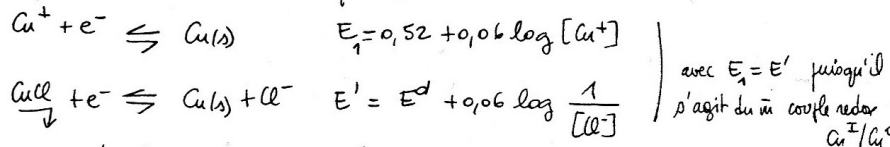 Cu⁺ + e⁻ ⇋ Cu(s) E₁ = 0,52 + 0,06 log [Cu⁺]
CuCl↓ + e⁻ ⇋ Cu(s) + Cl⁻ E' = E^d + 0,06 log 1/[Cl⁻]
avec E₁ = E' puisqu'il
s'agit du m̄ couple redox
Cu^I/Cu⁰